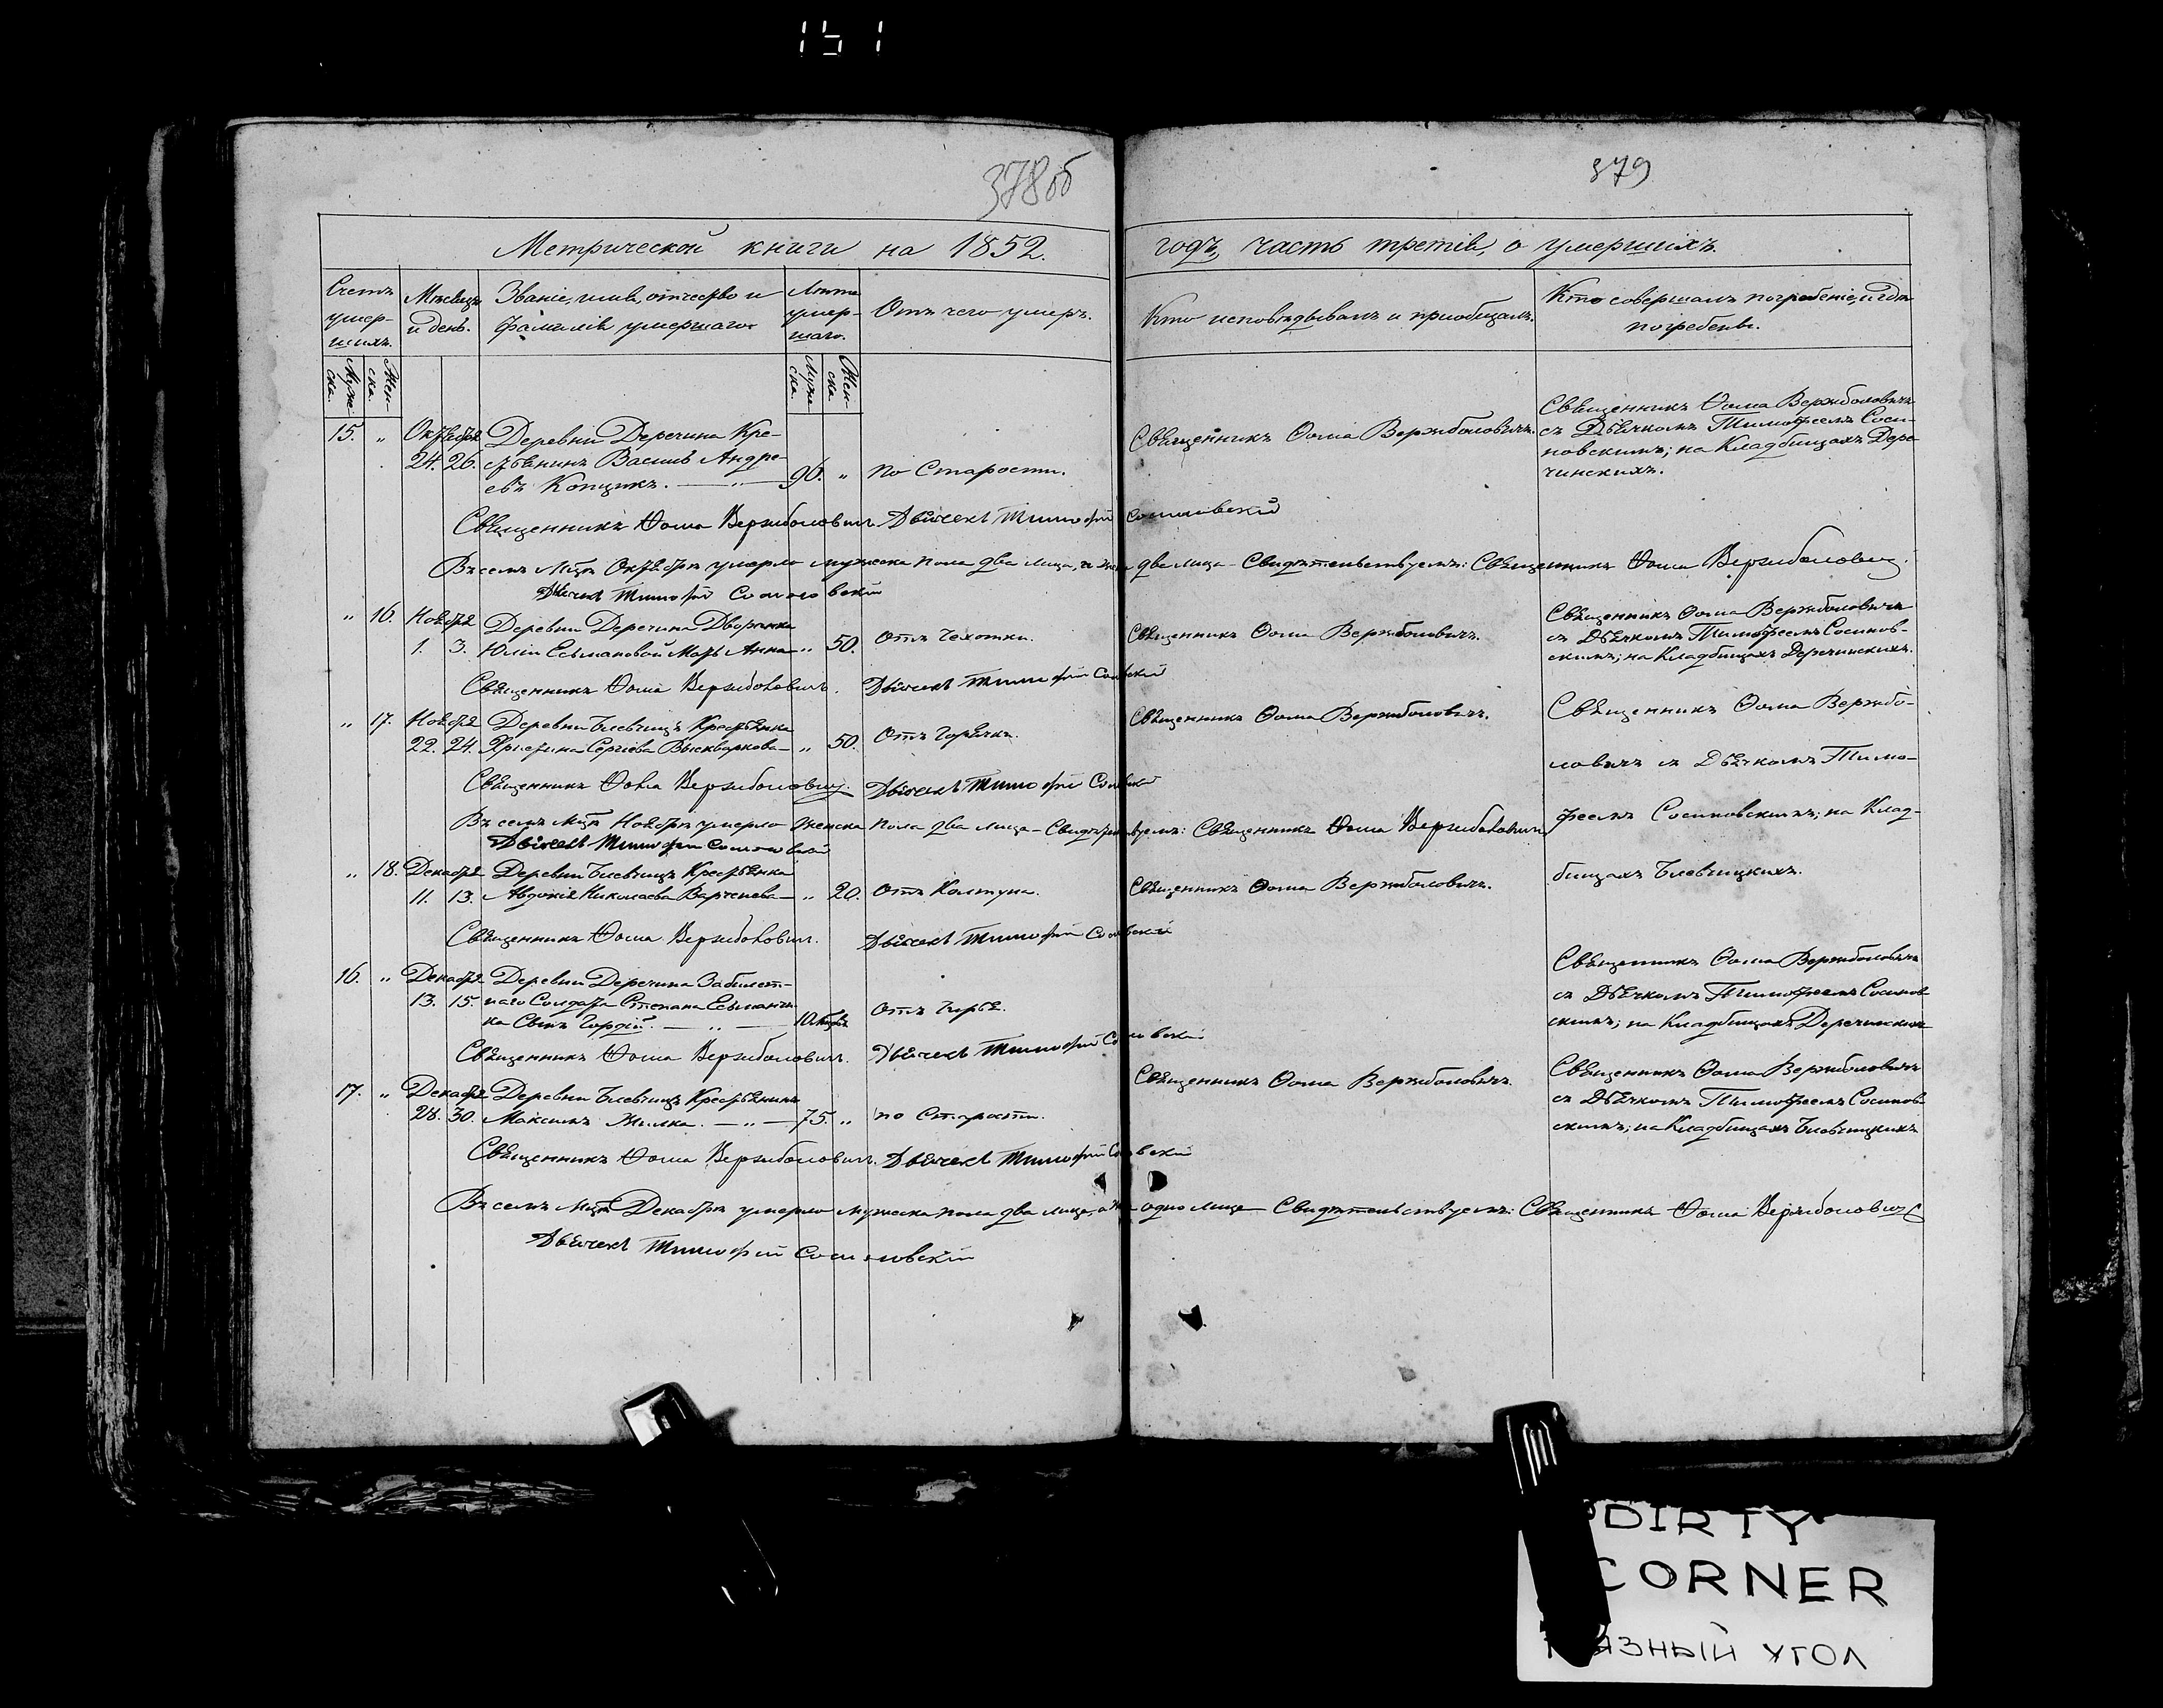 151
378об
379
Метрической книги на 1852.
годъ, часть третія, о умершихъ.
Счетъ умер-шихъ.
Мѣсяцъ и день.
Званіе, имя, отчество и
фамилія умершаго.
Лѣта умер-шаго.
Отъ чего умеръ.
Кто исповѣдывалъ и пріобщалъ.
Кто совершалъ погребеніе, и гдѣ
погребены.
Муже-ска.
Жен-ска.
Муже-ска.
Жен-ска
15. „ Октября Деревни Деречина Кре-
24. 26. стьянинъ Василь Андре-
евъ Копцикъ. — „ — 90. „ По Старости.
Священникъ Ѳома Вержболовичъ.
Священникъ Ѳома Вержболовичъ
съ Дьячкомъ Тимофеемъ Соси-
новскимъ; на Кладбищахъ Дере-
чинскихъ.
Священникъ Ѳома Вержболовичъ Дьячекъ Тимофій Сосиновскій
Въ семъ Мцѣ Октябрѣ умерло мужеска пола два лица, и два лица – Свидѣтельствуемъ: Священникъ Ѳома Вержболовичъ.
Дьячекъ Тимофій Сосиновскій
„ 16. Ноября Деревни Деречина Дворянки
1. 3. Юліи Есьмановой Мать Анна — „ 50. Отъ Чехотки.
Священникъ Ѳома Вержболовичъ.
Священникъ Ѳома Вержболовичъ
съ Дьячкомъ Тимофеемъ Сосинов-
скимъ; на Кладбищахъ Деречинскихъ.
Священникъ Ѳома Вержболовичъ. Дьячекъ Тимофій
„ 17. Ноября Деревни Крестьянка
22. 24. Христина Сергіева — „ 50. Отъ Горячки.
Священникъ Ѳома Вержболовичъ.
Священникъ Ѳома Вержбо-
ловичъ съ Дьячкомъ Тимо-
феемъ Сосиновскимъ; на Клад-
бищахъ
Священникъ Ѳома Вержболовичъ. Дьячекъ Тимофій
Въ семъ Мцѣ Ноябрѣ умерло Женска пола два лица – Свидѣтельствуемъ: Священникъ Ѳома Вержболовичъ
Дьячекъ Тимофій Сосиновскій
„ 18. Декабря Деревни Крестьянка
11. 13. Авдокія Николаева — „ 20. Отъ Колтуна.
Священникъ Ѳома Вержболовичъ.
Священникъ Ѳома Вержболовичъ. Дьячекъ Тимофій
16. „ Декабря Деревни Деречина Забилет-
13. 15. наго Солдата Степана Есьманчи-
ка Сынъ Гордій. — „ — 10.
Священникъ Ѳома Вержболовичъ
съ Дьячкомъ Тимофеемъ Сосинов-
скимъ; на Кладбищахъ Деречинскихъ
Священникъ Ѳома Вержболовичъ. Дьячекъ Тимофій
17. „ Декабря Деревни Крестьянинъ
28. 30. Максимъ Жилка. — „ — 75. „ по Старости.
Священникъ Ѳома Вержболовичъ.
Священникъ Ѳома Вержболовичъ
съ Дьячкомъ Тимофеемъ Сосинов-
скимъ; на Кладбищахъ
Священникъ Ѳома Вержболовичъ. Дьячекъ Тимофій
Въ семъ Мцѣ Декабрѣ умерло мужеска пола два лица, одно лице – Свидѣтельствуемъ: Священникъ Ѳома Вержболовичъ
Дьячекъ Тимофій Сосиновскій
DIRTY
CORNER
УГОЛ